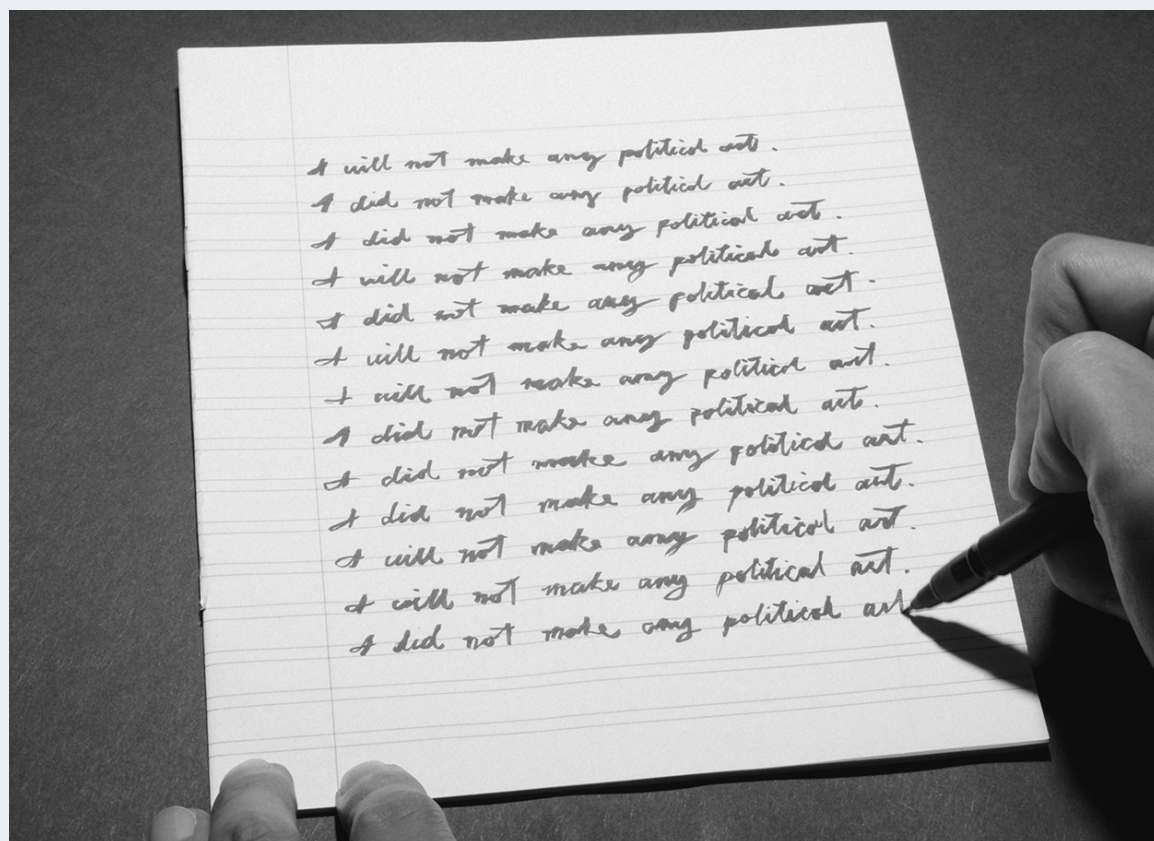 I will not make any political art.
I did not make any political art.
I did not make any political art.
I will not make any political art.
I did not make any political art.
I will not make any political art.
I will not make any political art.
I did not make any political art.
I did not make any political art.
I did not make any political art.
I will not make any political art.
I will not make any political art.
I did not make any political art